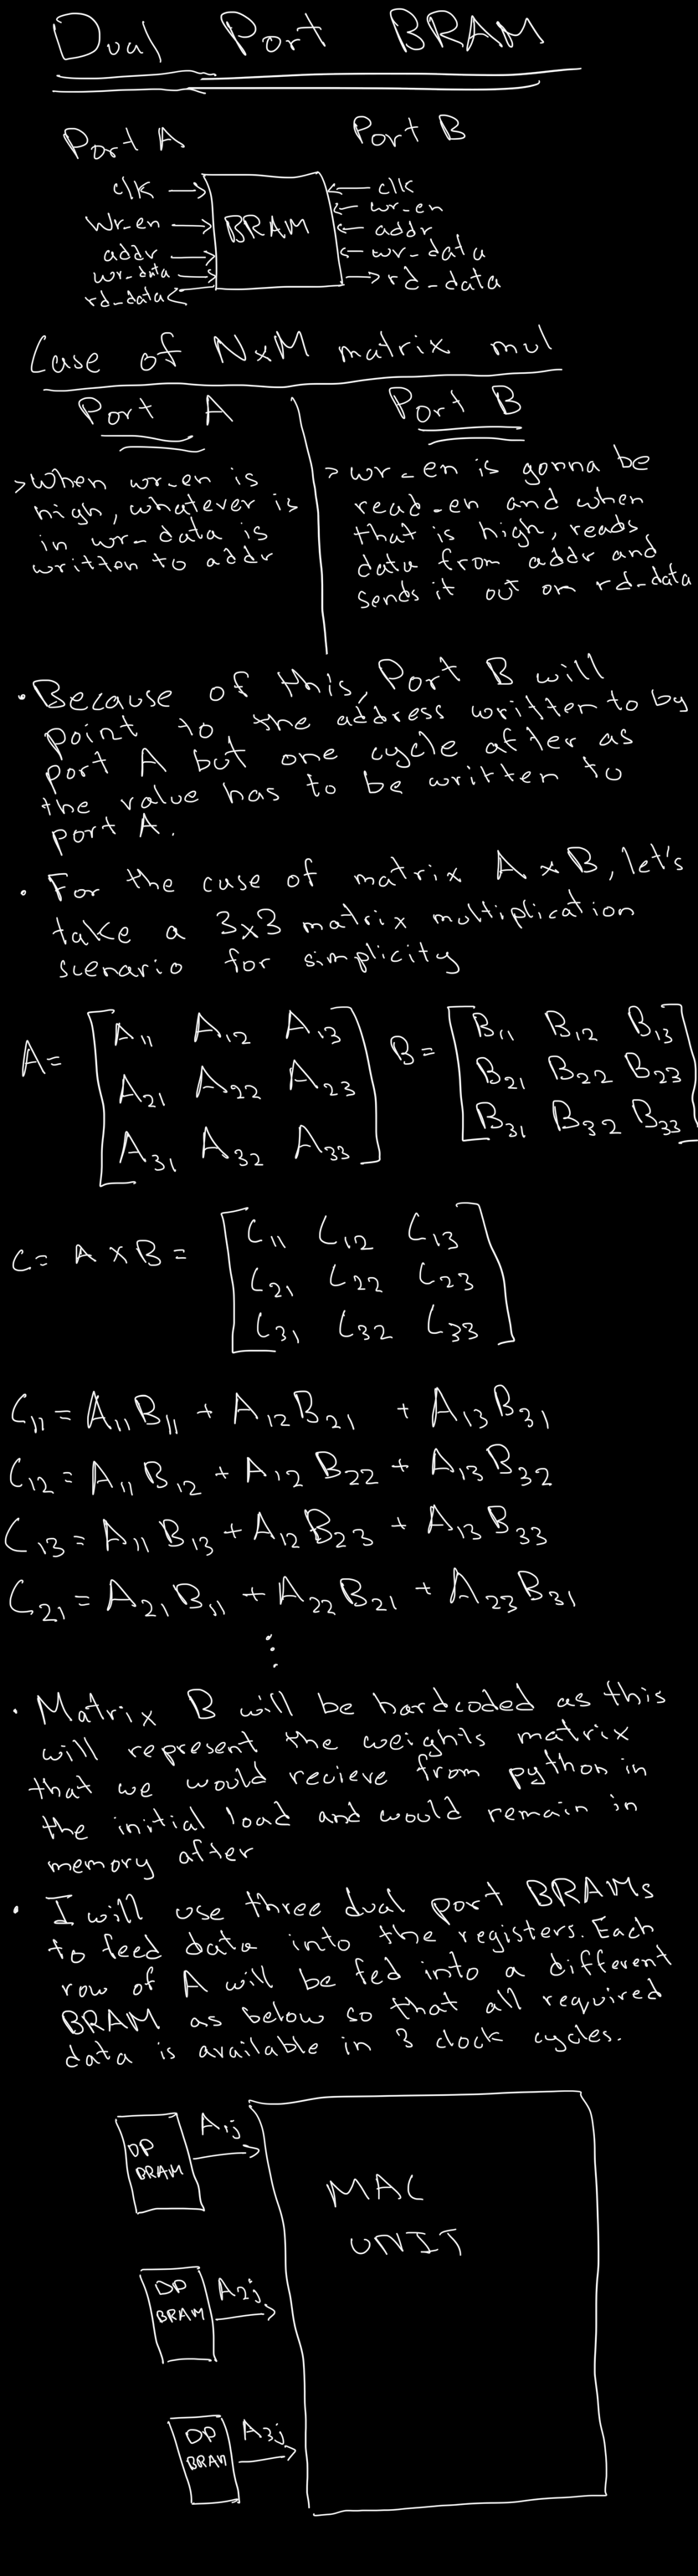 Dual Port BRAM
Port A Port B
clk clk
wr_en wr_en
addr BRAM addr
wr_data wr_data
rd_data rd_data
Case of NxM matrix mul
Port A Port B
> when wr_en is
high, whatever is
in wr_data is
written to addr
> wr_en is gonna be
read_en and when
that is high, reads
data from addr and
sends it out on rd_data
• Because of this, Port B will
point to the address written to by
port A but one cycle after as
the value has to be written to
port A.
• For the case of matrix A x B, let's
take a 3x3 matrix multiplication
scenario for simplicity
A= [A₁₁ A₁₂ A₁₃ B= [B₁₁ B₁₂ B₁₃
A₂₁ A₂₂ A₂₃ B₂₁ B₂₂ B₂₃
A₃₁ A₃₂ A₃₃] B₃₁ B₃₂ B₃₃]
C= A x B = [C₁₁ C₁₂ C₁₃
C₂₁ C₂₂ C₂₃
C₃₁ C₃₂ C₃₃]
C₁₁ = A₁₁B₁₁ + A₁₂B₂₁ + A₁₃B₃₁
C₁₂ = A₁₁B₁₂ + A₁₂B₂₂ + A₁₃B₃₂
C₁₃ = A₁₁B₁₃ + A₁₂B₂₃ + A₁₃B₃₃
C₂₁ = A₂₁B₁₁ + A₂₂B₂₁ + A₂₃B₃₁
⋮
• Matrix B will be hardcoded as this
will represent the weights matrix
that we would recieve from python in
the initial load and would remain in
memory after
• I will use three dual port BRAMs
to feed data into the registers. Each
row of A will be fed into a different
BRAM as below so that all required
data is available in 3 clock cycles.
DP
BRAM
A₁ⱼ
MAC
UNIT
DP
BRAM
A₂ⱼ
DP
BRAM
A₃ⱼ